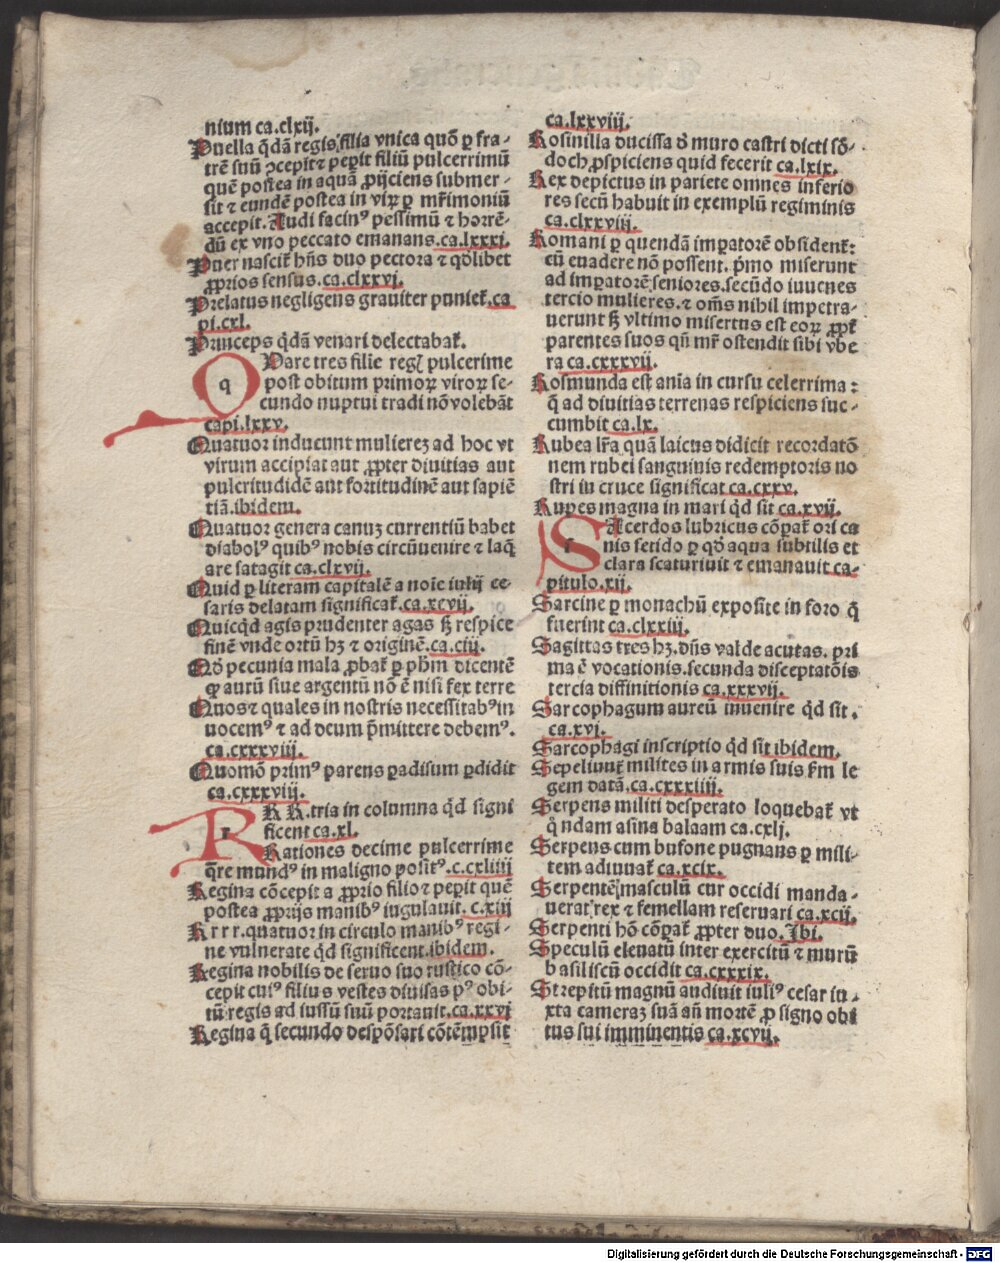 nium ca.clxij.
Puella q̄dā regis filia vnica quō ꝑ fra-
trē suū ↄcepit ⁊ peꝑit filiū pulcerrimū
quē postea in aquā ꝓijciens submer-
sit ⁊ eundē postea in virꝝ ꝑ mr̄imoniū
accepit. Audi facinꝰ pessimū ⁊ horrē-
dū ex vno peccato emanans.ca.lxxxi.
Puer nascit᷑ hn̄s duo pectora ⁊ qd̄libet
ꝓprios sensus.ca.clxxvi.
Prelatus negligens grauiter puniet᷑.ca
pi.cxl.
Princeps q̄dā venari delectabat᷑.
QVare tres filie regꝭ pulcerime
post obitum primoꝝ viroꝝ se-
cundo nuptui tradi nō volebāt
capi.lxxv.
Quatuor inducunt mulierez ad hoc vt
virum accipiat aut ꝓpter diuitias aut
pulcritudidē aut fortitudinē aut sapiē
tiā.ibidem.
Quatuor genera canuz currentiū habet
diabolꝰ quibꝰ nobis circūuenire ⁊ laq̄
are satagit ca.clxvij.
Quid ꝑ literam capitalē a noīe iulij ce-
saris delatam significat᷑.ca.xcvij.
Quicqd̄ agis prudenter agas sꝫ respice
finē vnde ortū hꝫ ⁊ originē.ca.ciij.
Qd̄ pecunia mala ꝓbat᷑ ꝑ ph̄m dicentē
qꝛ aurū siue argentū nō ē nisi fex terre
Quos ⁊ quales in nostris necessitabꝰ in
uocemꝰ ⁊ ad deum p̄mittere debemꝰ.
ca.cxxxviij.
Quomō primꝰ parens ꝑadisum ꝑdidit
ca.cxxxviij.
RR R.tria in columna qd̄ signi
ficent ca.xl.
Rationes decime pulcerrime
q̄re mundꝰ in maligno positꝰ.c.cxliiij
Regina cōcepit a ꝓprio filio ⁊ peꝑit quē
postea ꝓprijs manibꝰ iugulauit.c.xiij
R r r r.quatuor in circulo manibꝰ regi-
ne vulnerate qd̄ significent.ibidem.
Regina nobilis de seruo suo rustico cō-
cepit cuiꝰ filius vestes diuisas pꝰ obi-
tū regis ad iussū suū portauit.ca.xxvj
Regina q̄ secundo despōsari cōtēmpsit
ca.lxxviij.
Rosinilia ducissa d̄ muro castri dicti sō-
doch ꝓspiciens quid fecerit ca.lxix.
Rex depictus in pariete omnes inferio
res secū habuit in exemplū regiminis
ca.clxxviij.
Romani ꝑ quendā imꝑatorē obsident᷑:
cū euadere nō possent. pͥmo miserunt
ad imꝑatorē seniores.secūdo iuuenes
tercio mulieres.⁊ om̄s nihil impetra-
uerunt sꝫ vltimo misertus est eoꝝ ꝓpt᷑
parentes suos qn̄ mr̄ ostendit sibi vbe
ra ca.cxxxvij.
Rosmunda est aīa in cursu celerrima:
q̄ ad diuitias terrenas respiciens suc-
cumbit ca.lx.
Rubea lr̄a quā laicus didicit recordatō
nem rubei sanguinis redemptoris no
stri in cruce significat ca.cxxv.
Rupes magna in mari qd̄ sit ca.xvij.
SAcerdos lubricus cōꝑat᷑ ori ca
nis fetido ꝑ qd̄ aqua subtilis et
clara scaturiuit ⁊ emanauit ca-
pitulo.xij.
Sarcine ꝑ monachū exposite in foro q̄
fuerint ca.clxxiij.
Sagittas tres hꝫ.dn̄s valde acutas. pri
ma ē vocationis.secunda disceptatōis
tercia diffinitionis ca.xxxvij.
Sarcophagum aureū inuenire qd̄ sit.
ca.xvj.
Sarcophagi inscriptio qd̄ sit ibidem.
Sepeliunt᷑ milites in armis suis fm̄ le
gem datā.ca.cxxxiiij.
Serpens militi desperato loquebat᷑ vt
qͦndam asina balaam ca.cxlj.
Serpens cum bufone pugnans ꝑ mili-
tem adiuuat᷑ ca.xcix.
Serpentē masculū cur occidi manda-
uerat rex ⁊ femellam reseruari ca.xcij.
Serpenti hō cōꝑat᷑ ꝓpter duo.Ibi.
Speculū eleuatū inter exercitū ⁊ murū
basiliscū occidit ca.cxxxix.
Strepitū magnū audiuit iuliꝰ cesar iu-
xta cameraz suā an̄ mortē ꝓ signo obi
tus sui imminentis ca.xcvij.
Digitalisierung gefördert durch die Deutsche Forschungsgemeinschaft - DFG